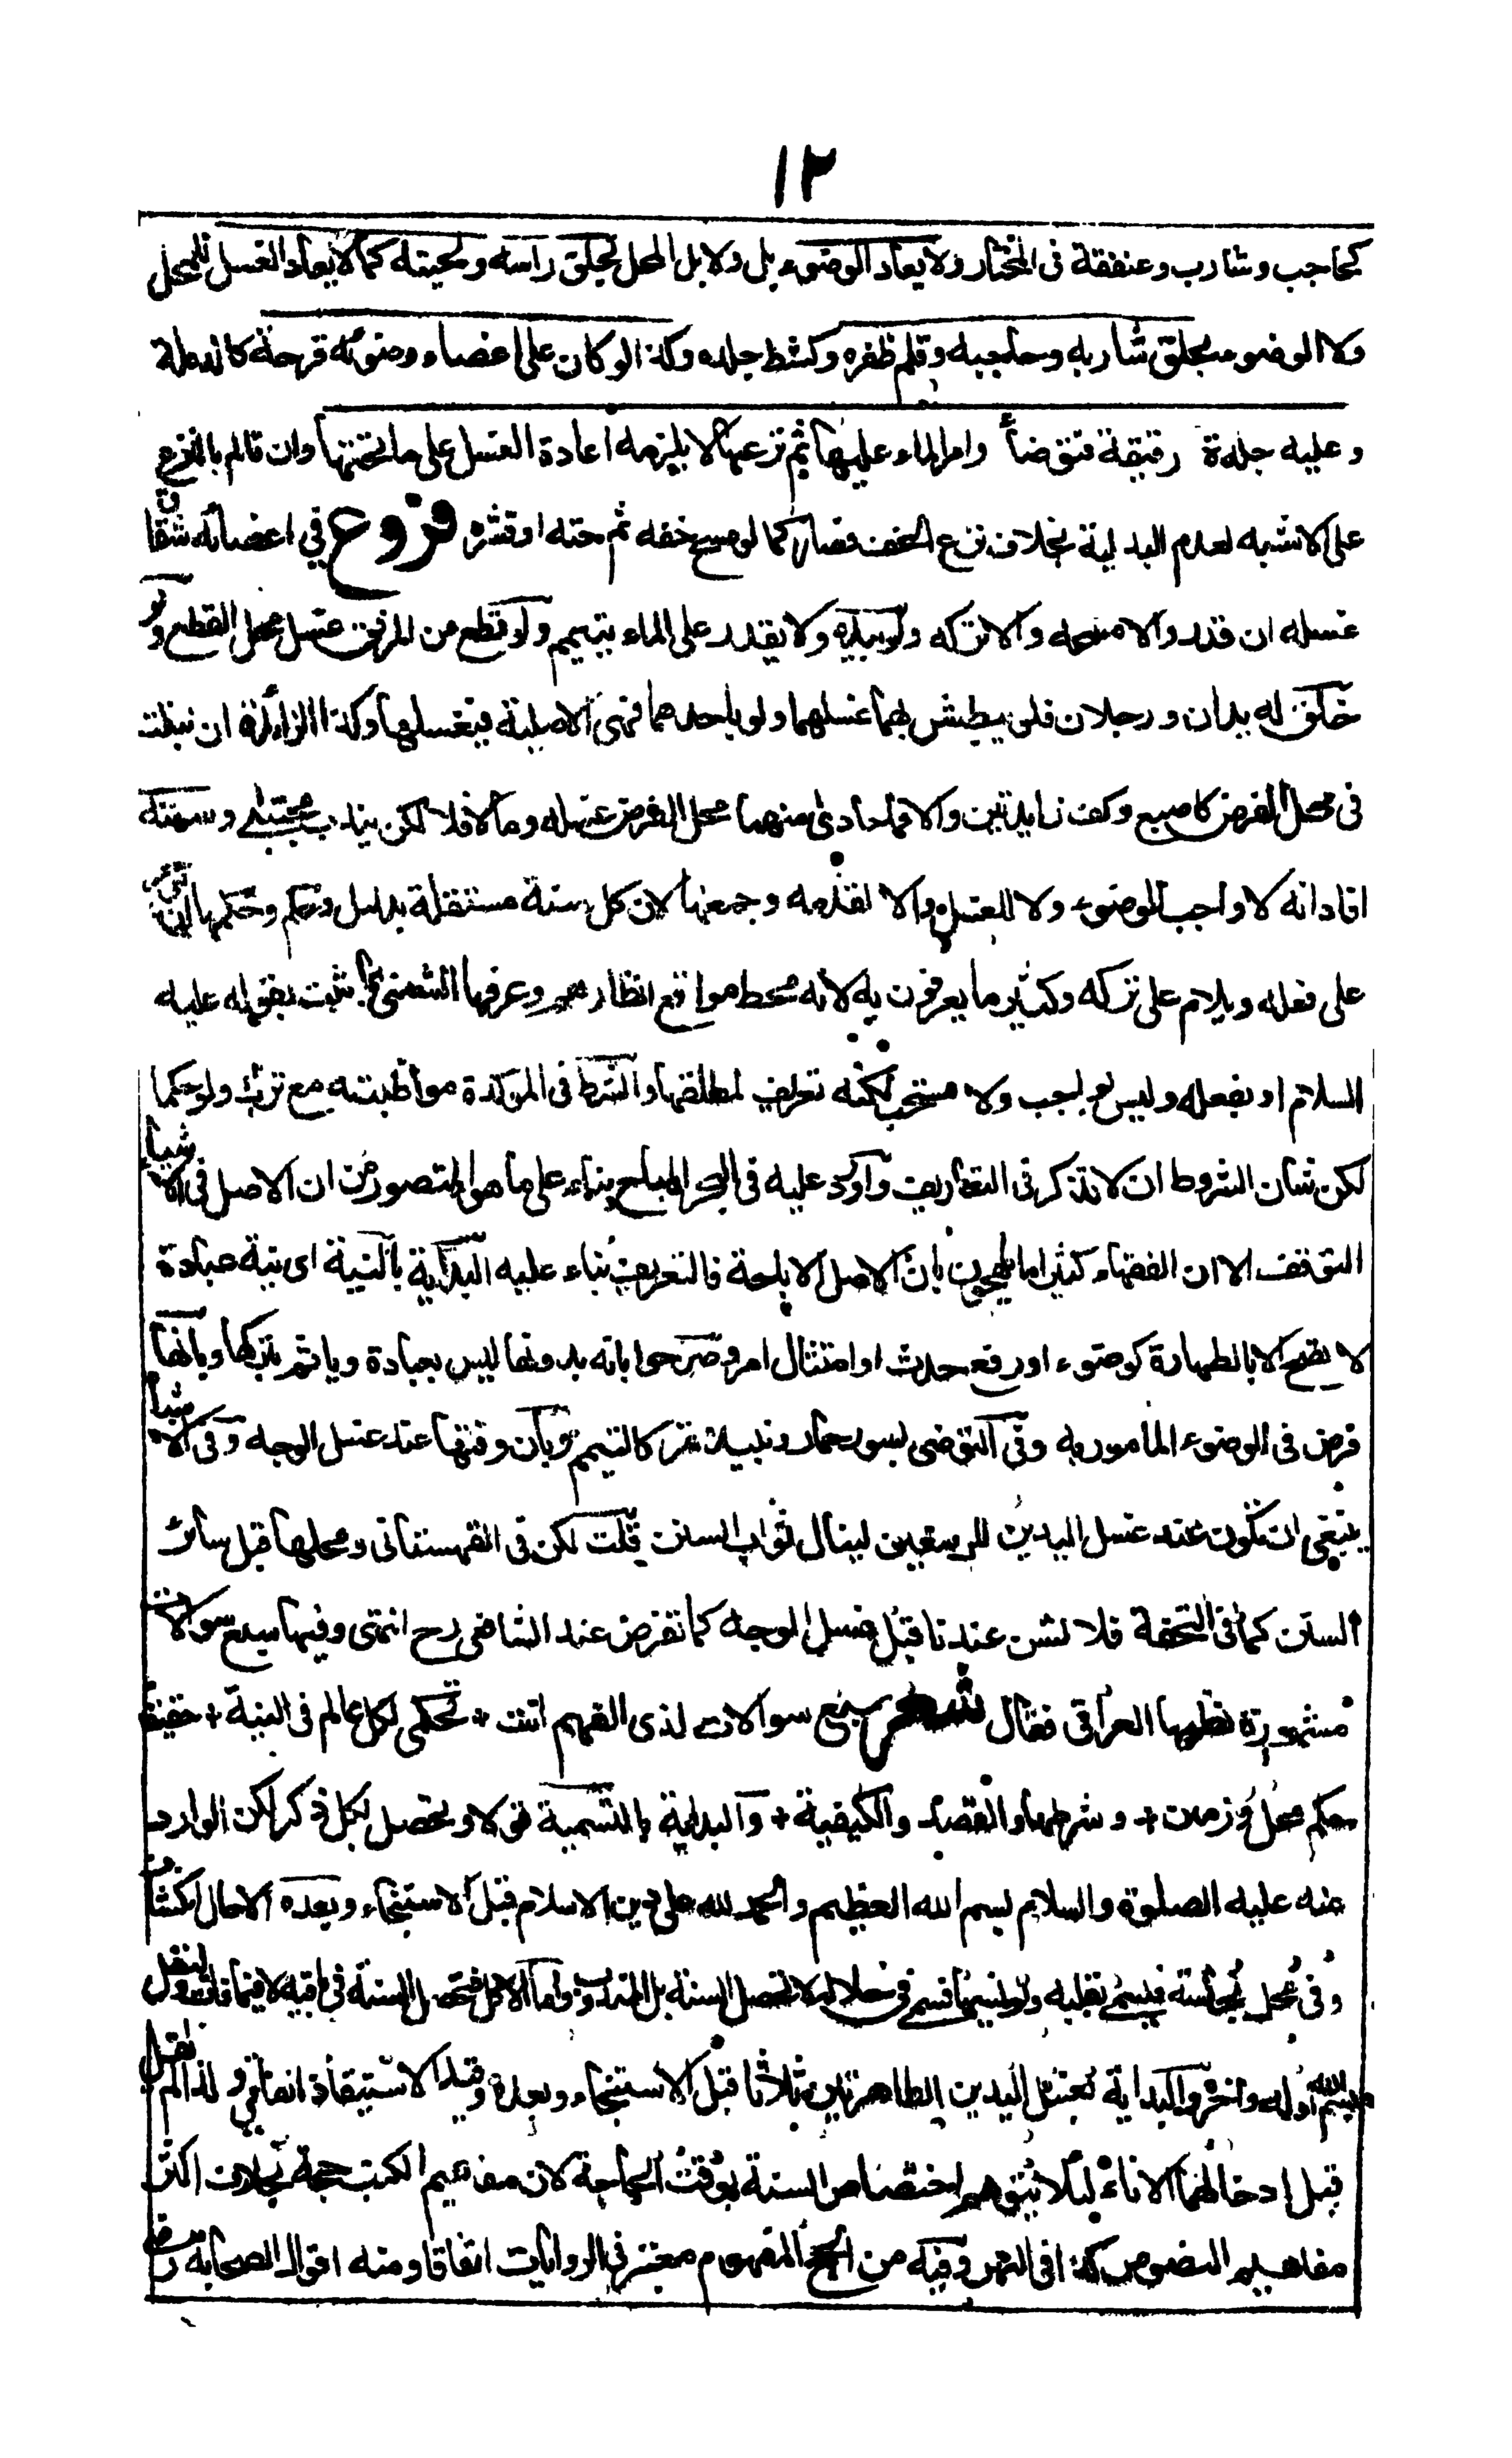 ١٢
كحاجب وشارب وعنفقة فى المختار ولا يعاد الوضوء بل ولا بل المحل بحلق راسه ولحيته كما لا يعاد الغسل للمحل
ولا الوضوء بحلق شاربه وحاجبه وقلم ظفره وكشط جلده وكذا لو كان على اعضاء وضوئه قرحة كالدملة
وعليه جلدة رقيقة فتوضأ وامر الماء عليها ثم نزعها لا يلزمه اعادة الغسل على ما تحتها وان تالم بالنزع
على الاشبه لعدم البدلية بخلاف نزع الخف فصار كما لو مسح خفه ثم حته او قشره فروع في اعضائه شقاق
غسله ان قدر والا مسحه والا تركه ولو بيده ولا يقدر على الماء يتيمم ولو قطع من المرفق غسل محل القطع ولو
خلق له يدان ورجلان فلو يبطش بهما غسلهما ولو باحدهما فهى الاصلية فيغسلها وكذا الزائدة ان نبتت
فى محل الفرض كاصبع وكف زايدتين والا فما حاذى منهما محل الفرض غسله وما لا فلا لكن يندب مجتبى وسننه
افاد انه لا واجب للوضوء ولا للغسل والا لقدمه وجمعها لان كل سنة مستقلة بدليل وحكم وحكمها ان يوجر
على فعله ويلام على تركه وكثيرا ما يعرفون به لانه محط مواقع انظارهم وعرفها الشمنى بما ثبت بقوله عليه
السلام او بفعله وليس بواجب ولا مستحب لكنه تعريف لمطلقها والشرط فى المؤكدة مواظبته مع ترك ولو حكما
لكن شان الشروط ان لا تذكر فى التعاريف واورد عليه فى البحر المباح بناء على ما هو المتصور من ان الاصل فى الاشياء
التوقف الا ان الفقهاء كثيرا ما يلهجون بان الاصل الاباحة فالتعريف بناء عليه البداية بالنية اى نية عبادة
لا تصح الا بالطهارة كوضوء او رفع حدث او امتثال امر وصرحوا بانه بدونها ليس بعبادة وياثم بتركها وبانها
فرض فى الوضوء المامور به وفى التوضى بسور حمار ونبيذ تمر كالتيمم وبان وقتها عند غسل الوجه وفى الاشباه
ينبغى ان تكون عند غسل اليدين للرسغين لينال ثواب السنن قلت لكن فى القهستانى ومحلها قبل سائر
السنن كما فى التحفة فلا تسن عندنا قبل غسل الوجه كما تفرض عند الشافعى رح انتهى وفيها سبع سوالات
مشهورة نظمها العراقى فقال شعر سبع سوالات لذى الفهم اتت + تحكى لكل عالم فى النية + حقيقة
حكم محل وزمن + وشرطها والقصد والكيفية + والبداية بالتسمية قولا وتحصل بكل ذكر لكن الوارد
عنه عليه الصلوة والسلام بسم الله العظيم والحمد لله على دين الاسلام قبل الاستنجاء وبعده الا حال انكشاف
وفى محل نجاسة فيسمى بقلبه ولو نسيها فسمى فى خلاله لا تحصل السنة بل المندوب واما الاكل فتحصل السنة فى باقيه لا فيما فات وليقل
بسم الله اوله واخره والبداية بغسل اليدين الطاهرتين ثلاثا قبل الاستنجاء وبعده وقيد الاستيقاظ اتفاقى ولذا لم يقل
قبل ادخالهما الاناء لئلا يتوهم اختصاص السنة بوقت الحاجة لان مفاهيم الكتب حجة بخلاف اكثر
مفاهيم النصوص كذا فى النهر وفيه من الحج المفهوم معتبر فى الروايات اتفاقا ومنه اقوال الصحابة رض